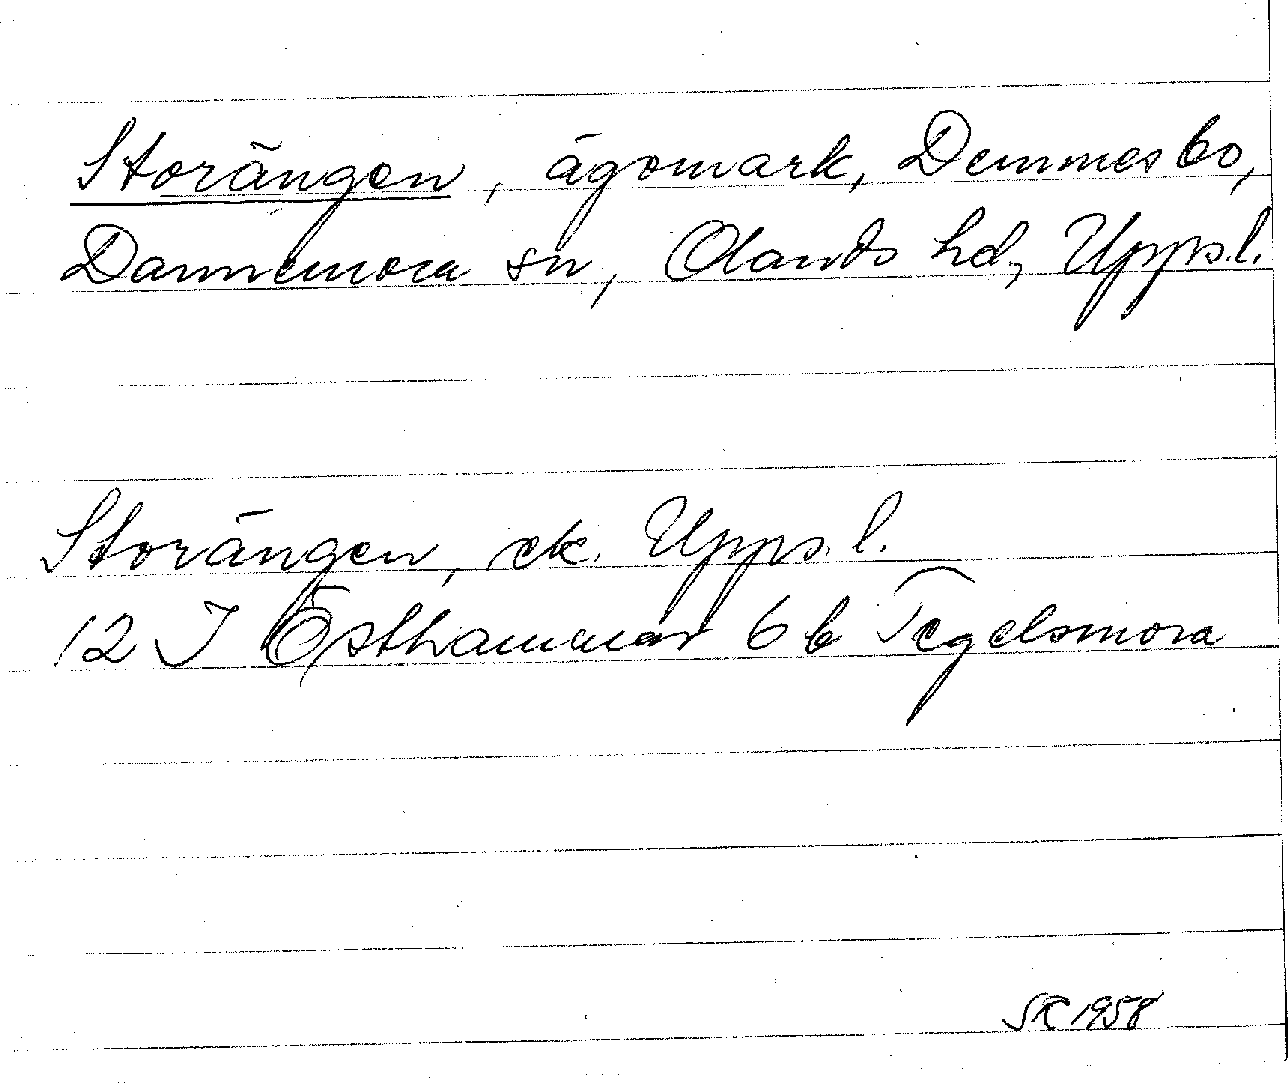 Storängen, ägomark, Demmesbo,
Dannemora sn, Olands hd, Upps.l.
Storängen, ek. Upps.l.
12 I Östhammar 6 b Tegelsmora
SK 1958